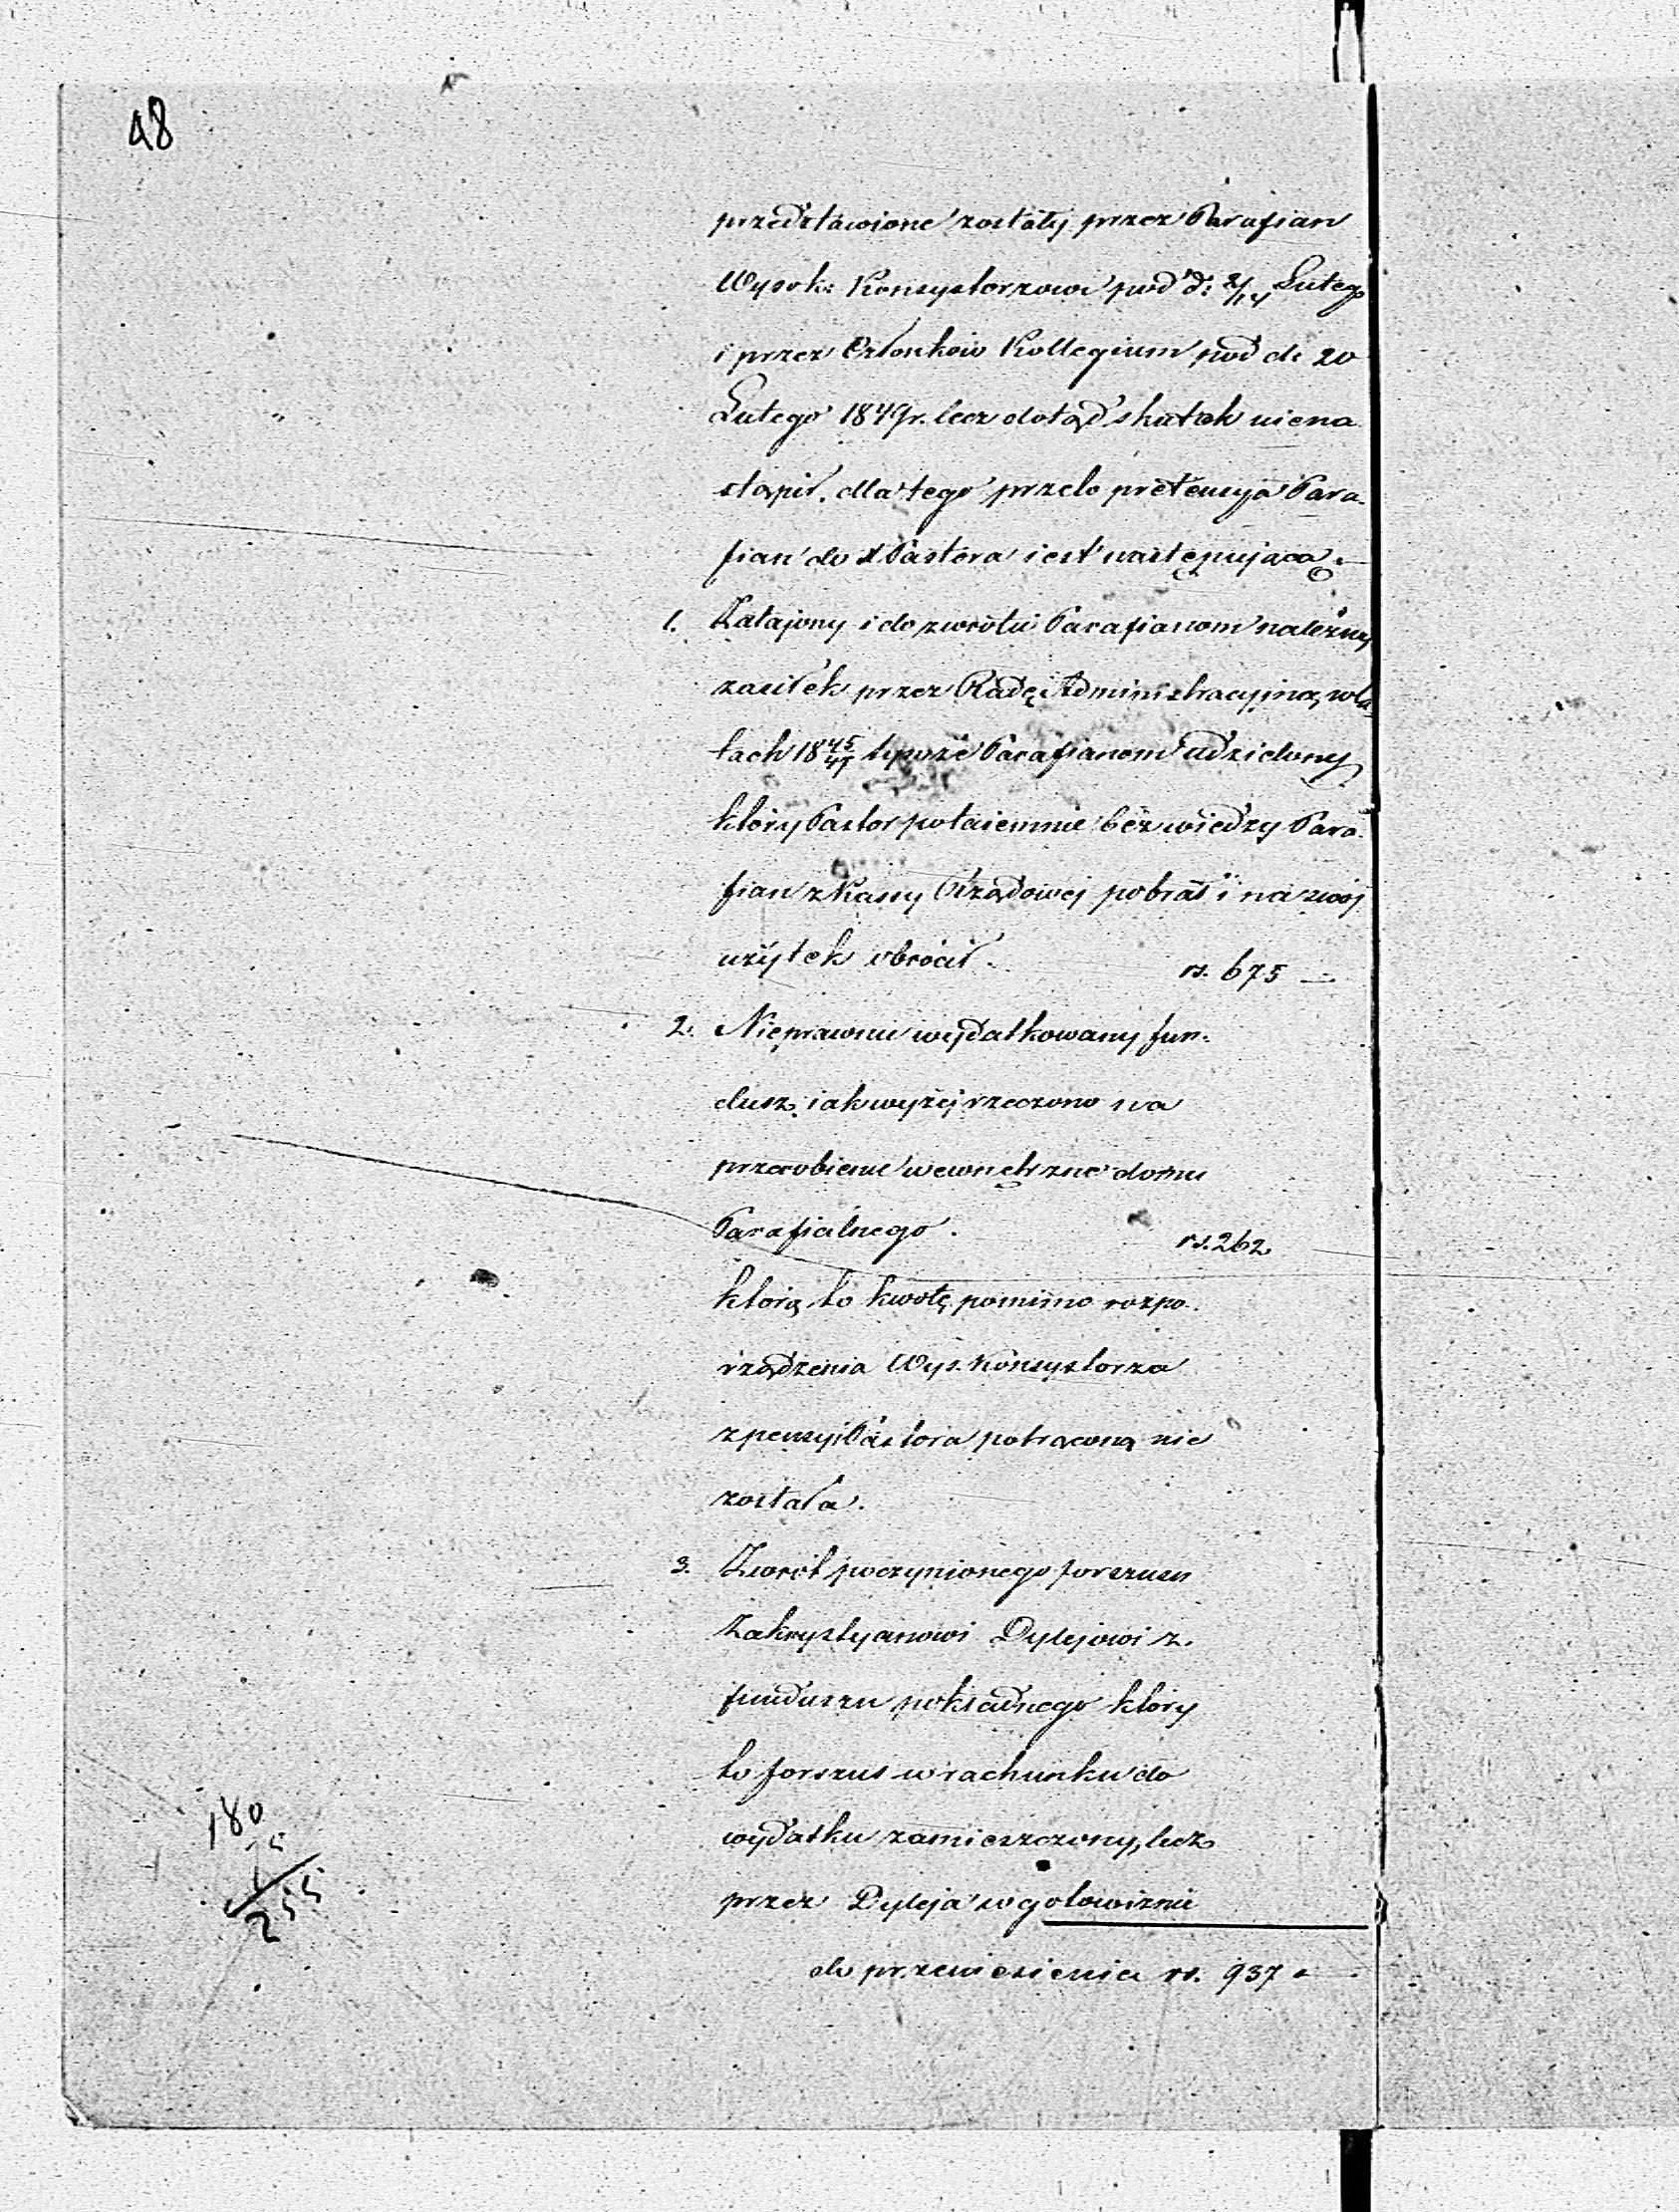 48
przedstawione zostały przez Parafian
Wysok: Konsystorzowi pod d: 2/14 Lutego
i przez Członków Kollegium pod d: 20
Lutego 1849r. lecz dotąd skutek niena
stąpił. dla tego przeto pretensya Para-
fian do Pastora iest następująca
1. Zatajony i do zwrotu Parafianom należny
zasiłek przez Radę Administracyjną w la-
tach 18 45/47 tymże Parafianom udzielony
który Pastor potaiemnie bez wiedzy Para-
fian z Kassy Rządowej pobrał i na swój
użytek obrócił. rs. 675 —
2. Nieprawnie wydatkowany fun-
dusz, iak wyżej rzeczono na
przerobienie wewnętrzne domu
Parafialnego. rs. 262
którą to kwotę pomimo rozpo-
rządzenia Wys. Konsystorza
z pensyi Pastora potrąconą nie
została.
3. Zwrot poczynionego forszusu
Zakrystyanowi Dylejowi z
funduszu pokładnego który
to forszus w rachunku do
wydatku zamieszczony, lecz
przez Dyleja w gotowiznie
do przeniesienia rs. 937 —
180
75
255